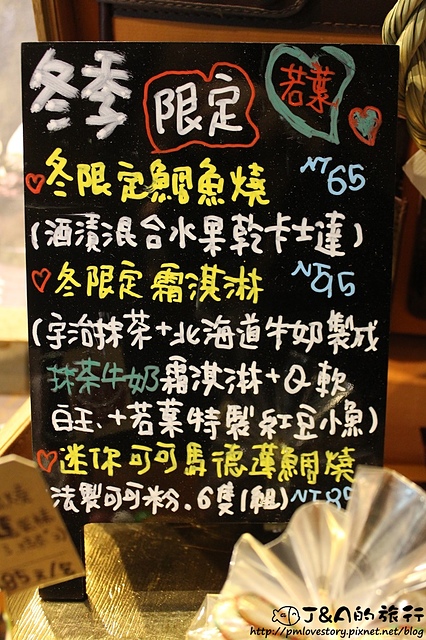 冬季 限定 若葉
冬限定鯛魚燒 NT65
(酒漬混合水果乾卡士達)
冬限定霜淇淋 NT95
(宇治抹茶+北海道牛奶製成
抹茶牛奶霜淇淋+Q軟
白玉、+若葉特製紅豆小魚)
迷你可可馬德蓮鯛燒
法製可可粉.6隻(1組) NT85
J&A的旅行
http://pmlovestory.pixnet.net/blog